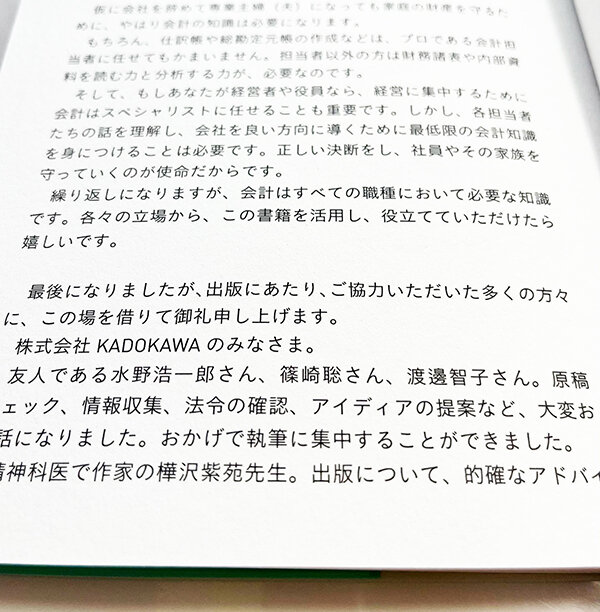 仮に会社を辞めて専業主婦（夫）になっても家庭の財産を守るた
めに、やはり会計の知識は必要になります。
もちろん、仕訳帳や総勘定元帳の作成などは、プロである会計担
当者に任せてもかまいません。担当者以外の方は財務諸表や内部資
料を読む力と分析する力が、必要なのです。
そして、もしあなたが経営者や役員なら、経営に集中するために
会計はスペシャリストに任せることも重要です。しかし、各担当者
たちの話を理解し、会社を良い方向に導くために最低限の会計知識
を身につけることは必要です。正しい決断をし、社員やその家族を
守っていくのが使命だからです。
繰り返しになりますが、会計はすべての職種において必要な知識
です。各々の立場から、この書籍を活用し、役立てていただけたら
嬉しいです。
最後になりましたが、出版にあたり、ご協力いただいた多くの方々
に、この場を借りて御礼申し上げます。
株式会社 KADOKAWA のみなさま。
友人である水野浩一郎さん、篠崎聡さん、渡邊智子さん。原稿
ェック、情報収集、法令の確認、アイディアの提案など、大変お
話になりました。おかげで執筆に集中することができました。
精神科医で作家の樺沢紫苑先生。出版について、的確なアドバイ